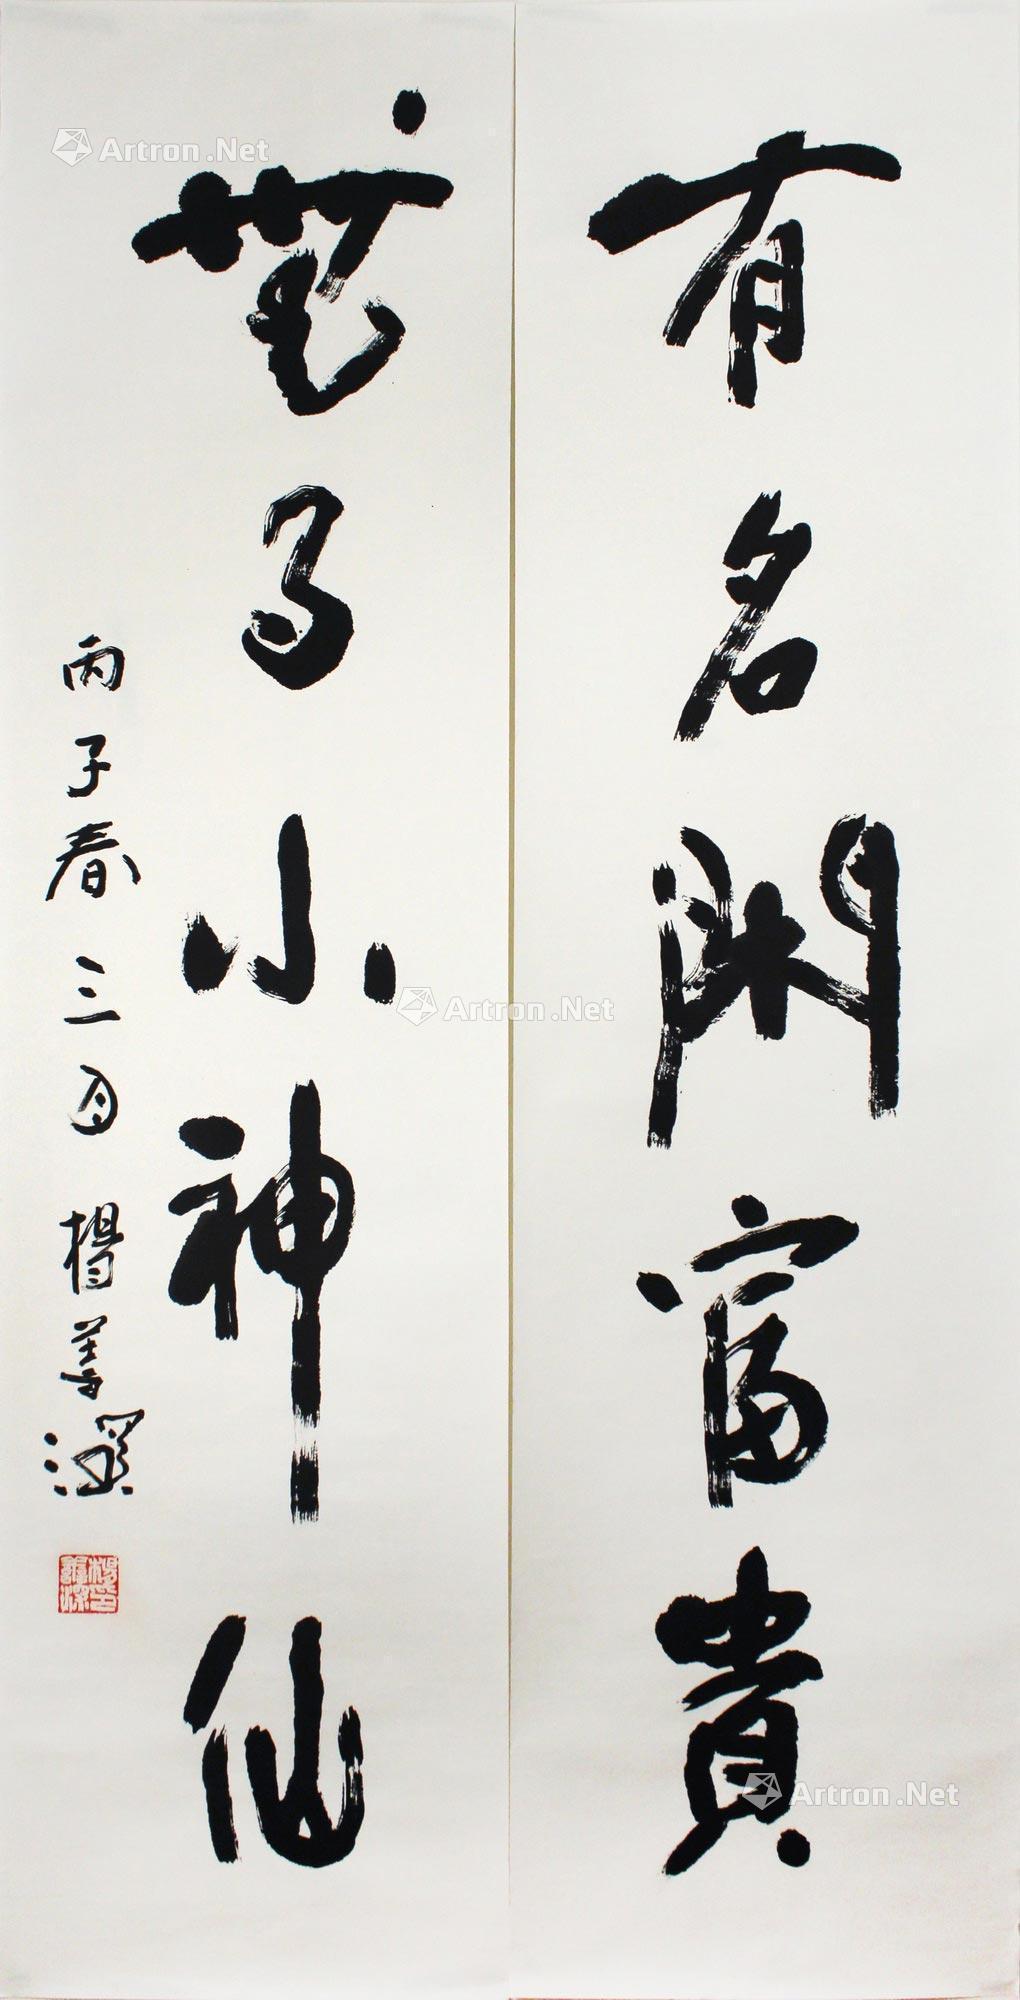 有名閑富貴
無事小神仙
丙子春三月楊善深
楊善深印
Artron.Net
Artron.Net
Artron.Net